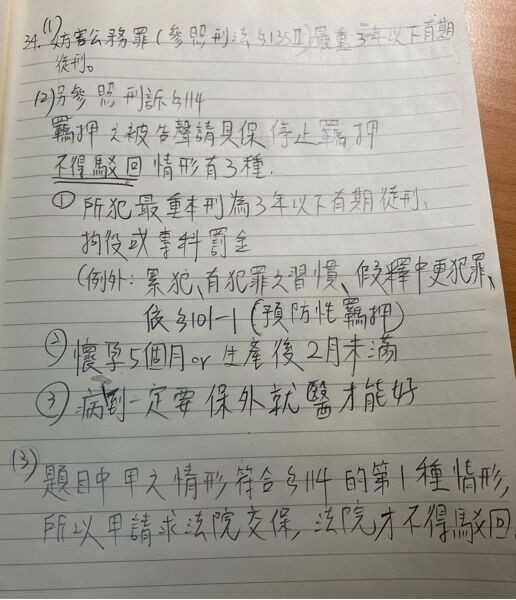 34. (1) 妨害公務罪(參照刑法§135Ⅱ)最重3年以下有期
徒刑。
(2) 另參照刑訴§114
羈押之被告聲請具保停止羈押
不得駁回情形有3種.
① 所犯最重本刑為3年以下有期徒刑、
拘役或專科罰金
(例外:累犯、有犯罪之習慣、假釋中更犯罪、
依§101-1(預防性羈押)
② 懷孕5個月or生產後2月未滿
③ 病到一定要保外就醫才能好
(3) 題目中甲之情形符合§114的第1種情形,
所以甲請求法院交保,法院才不得駁回.